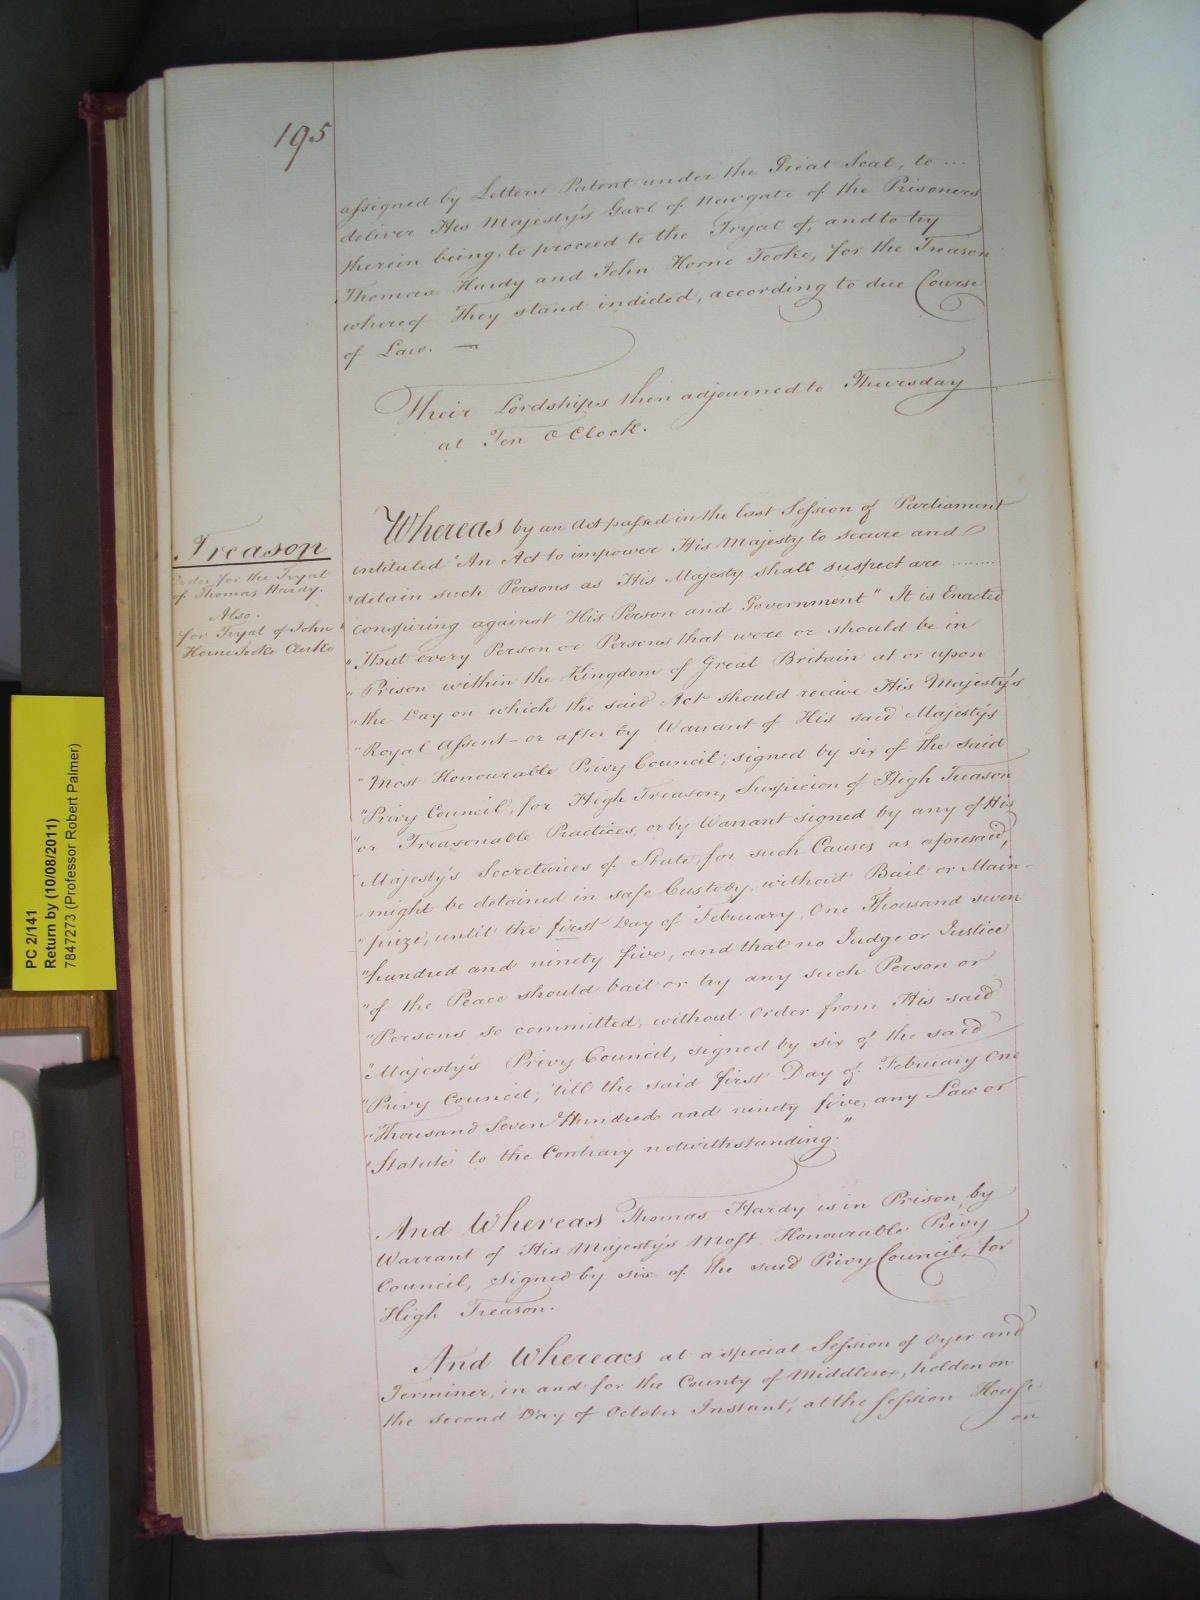 195
assigned by Letters Patent under the Great Seal, to ...
deliver His Majesty's Gaol of Newgate of the Prisoners
therein being, to proceed to the Tryal of, and to try
Thomas Hardy and John Horne Tooke, for the Treason
whereof They stand indicted, according to due Course
of Law. —
Their Lordships then adjourned to Thursday
at Ten O Clock.
Treason
Order for the Tryal
of Thomas Hardy.
Also.
for Tryal of John
Horne Tooke Clerk
Whereas by an Act passed in the last Session of Parliament
intituled "An Act to impower His Majesty to secure and
"detain such Persons as His Majesty shall suspect are ........
"conspiring against His Person and Government" It is Enacted
"That every Person or Persons that were or should be in
"Prison within the Kingdom of Great Britain at or upon
"the Day on which the said Act should receive His Majesty's
"Royal Assent - or after by Warrant of His said Majesty's
"Most Honourable Privy Council, signed by six of the said
"Privy Council, for High Treason, Suspicion of High Treason
"or Treasonable Practices, or by Warrant signed by any of His
"Majesty's Secretaries of State, for such Causes as aforesaid,
"might be detained in safe Custody, without Bail or Main-
"prize, until the first Day of February, One Thousand seven
"hundred and ninety five, and that no Judge or Justice
"of the Peace should bail or try any such Person or
"Persons so committed, without Order from His said
"Majesty's Privy Council, signed by six of the said
"Privy Council, 'till the said first Day of February One
"Thousand Seven Hundred and ninety five, any Law or
"Statute to the Contrary notwithstanding."
And Whereas Thomas Hardy is in Prison, by
Warrant of His Majesty's Most Honourable Privy
Council, signed by six of the said Privy Council, for
High Treason.
And Whereas at a special Session of Oyer and
Terminer, in and for the County of Middlesex, holden on
the second Day of October Instant, at the Session House
on
PC 2/141
Return by (10/08/2011)
7847273 (Professor Robert Palmer)